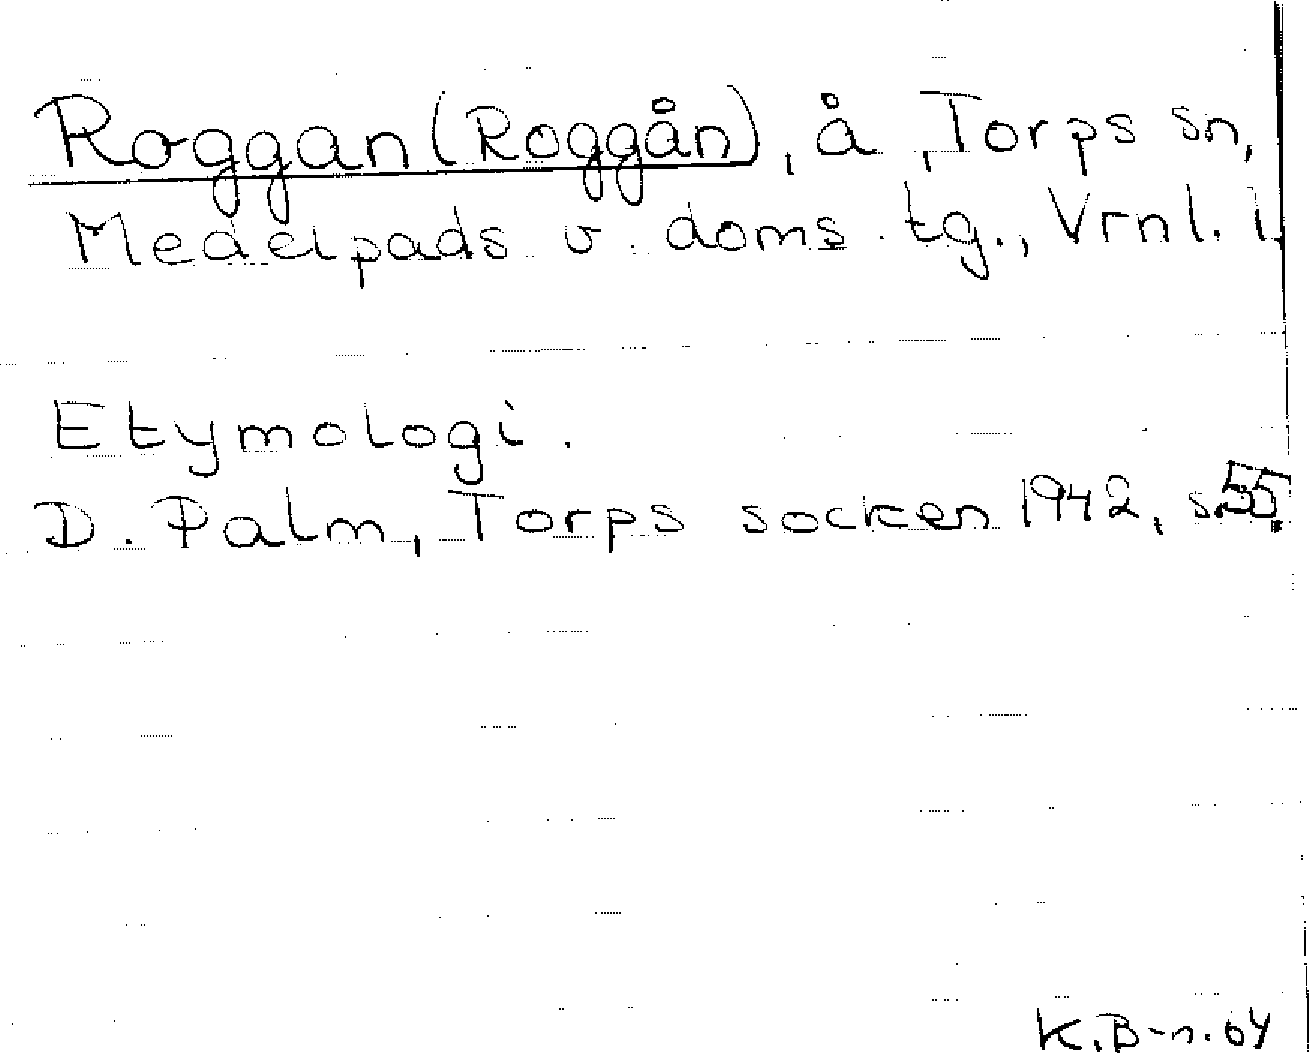 Roggan (Roggån), å, Torps sn,
Medelpads v. doms. tg., Vrnl. l.
Etymologi.
D. Palm, Torps socken 1942, s. 55.
K.B-n. 64